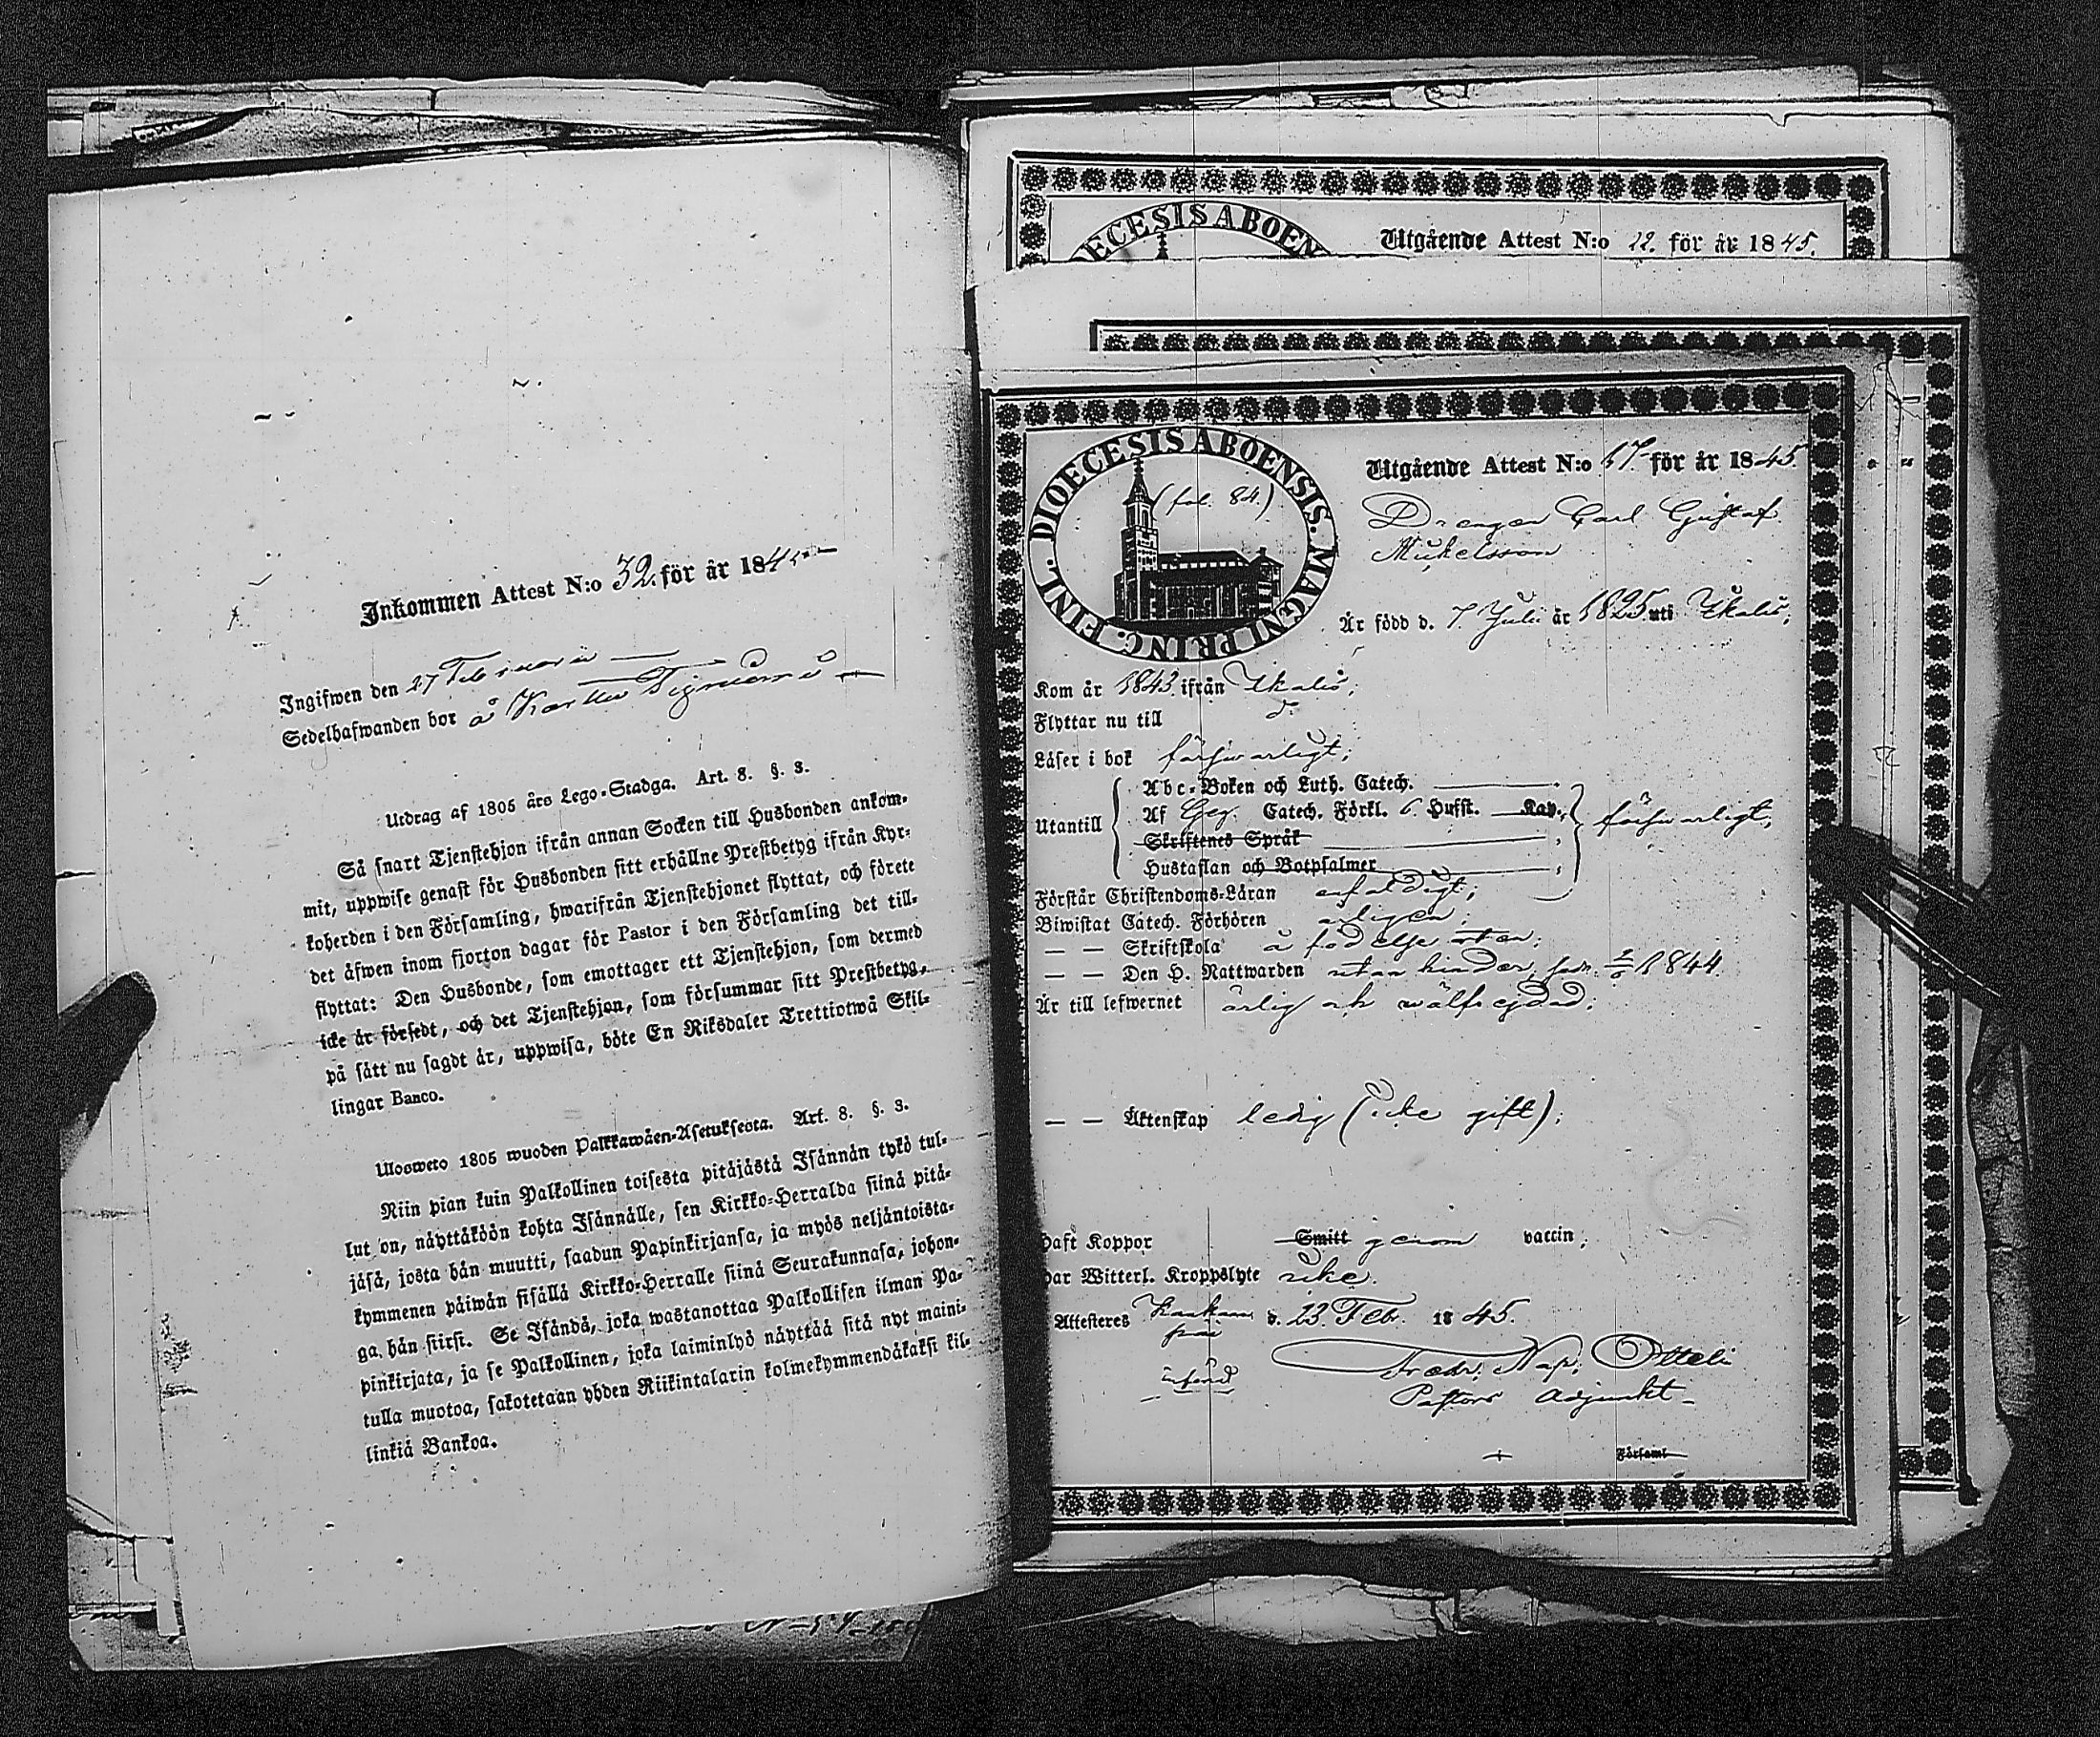 Inkommen Attest N:o 32. för år 1845.
Ingifwen den 27 Februarii
Sedelhafwanden bor å
Utdrag af 1805 års Lego-Stadga. Art. 8. §. 3.
Så snart Tjenstehjon ifrån annan Socken till Husbonden ankom-
mit, uppwise genast för Husbonden sitt erhållne Prestbetyg ifrån Kyr-
koherden i den Församling, hwarifrån Tjenstehjonet flyttat, och förete
det äfwen inom fjorton dagar för Pastor i den Församling det till-
flyttat: Den Husbonde, som emottager ett Tjenstehjon, som dermed
icke är försedt, och det Tjenstehjon, som försummar sitt Prestbetyg,
på sätt nu sagdt är, uppwisa, böte En Riksdaler Trettiotwå Skil-
lingar Banco.
Ulosweto 1805 wuoden Palkkawäen-Asetuksesta. Art. 8. §. 3.
Niin pian kuin Palkollinen toisesta pitäjästä Isännän tykö tul-
lut on, näyttäköön kohta Isännälle, sen Kirkko-Herralda siinä pitä-
jäsä, josta hän muutti, saadun Papinkirjansa, ja myös neljäntoista-
kymmenen päiwän sisällä Kirkko-Herralle siinä Seurakunnasa, johon-
ga hän siirsi. Se Isändä, joka wastanottaa Palkollisen ilman Pa-
pinkirjata, ja se Palkollinen, joka laiminlyö näyttää sitä nyt maini-
tulla muotoa, sakotetaan yhden Riikintalarin kolmekymmendäkaksi kil-
linkiä Bankoa.
DIOECESIS ABOEN
Utgående Attest N:o 22. för år 1845.
DIOECESIS ABOENSIS. MAGNI PRINC. FINL.
(fol. 84.)
Utgående Attest N:o 17. för år 1845.
Drengen Carl Gustaf
Mickelsson
Är född d. 7 Julii år 1825 uti Ikalis;
Kom år 1843 ifrån Ikalis;
Flyttar nu till d:o
Läser i bok förswarligt;
Utantill
Abc-Boken och Luth. Catech.
Af Catech. Förkl. 6. Hufst. Kap.
förswarligt;
Skriftenes Språk
Hustaflan och Botpsalmer
Förstår Christendoms-Läran enfaldigt;
Biwistat Catech. Förhören årligen;
— — Skriftskola å födelse orten;
— — Den H. Nattwarden utan hinder, 1844.
Är till lefwernet ärlig och wälfrejdad;
— — Äktenskap ledig (icke gift);
Haft Koppor Smitt genom vaccin;
Har Witterl. Kroppslyte icke.
Attesteres d. 13 Febr. 1845.
Fredr. Nap:
Pastors Adjunkt
Församl